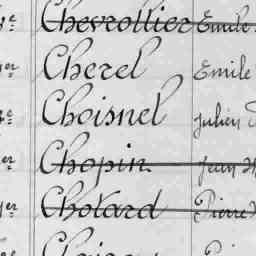 Chevrollier Emile
er Cherel Emile
e Choisnel Julien
er Chopin Jean
er Chotard Pierre